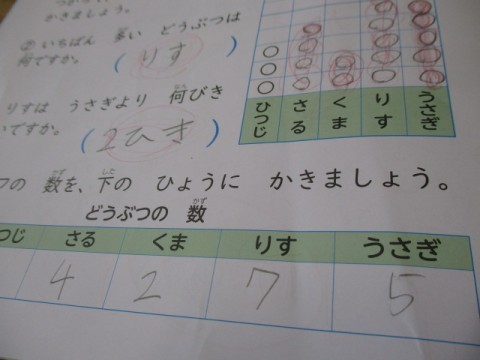 かきましょう。
② いちばん 多い どうぶつは
何ですか。 (りす)
りすは うさぎより 何びき
いですか。 (2ひき)
ひつじ さる くま りす うさぎ
つの 数を、下の ひょうに かきましょう。
どうぶつの 数
つじ さる くま りす うさぎ
4 2 7 5